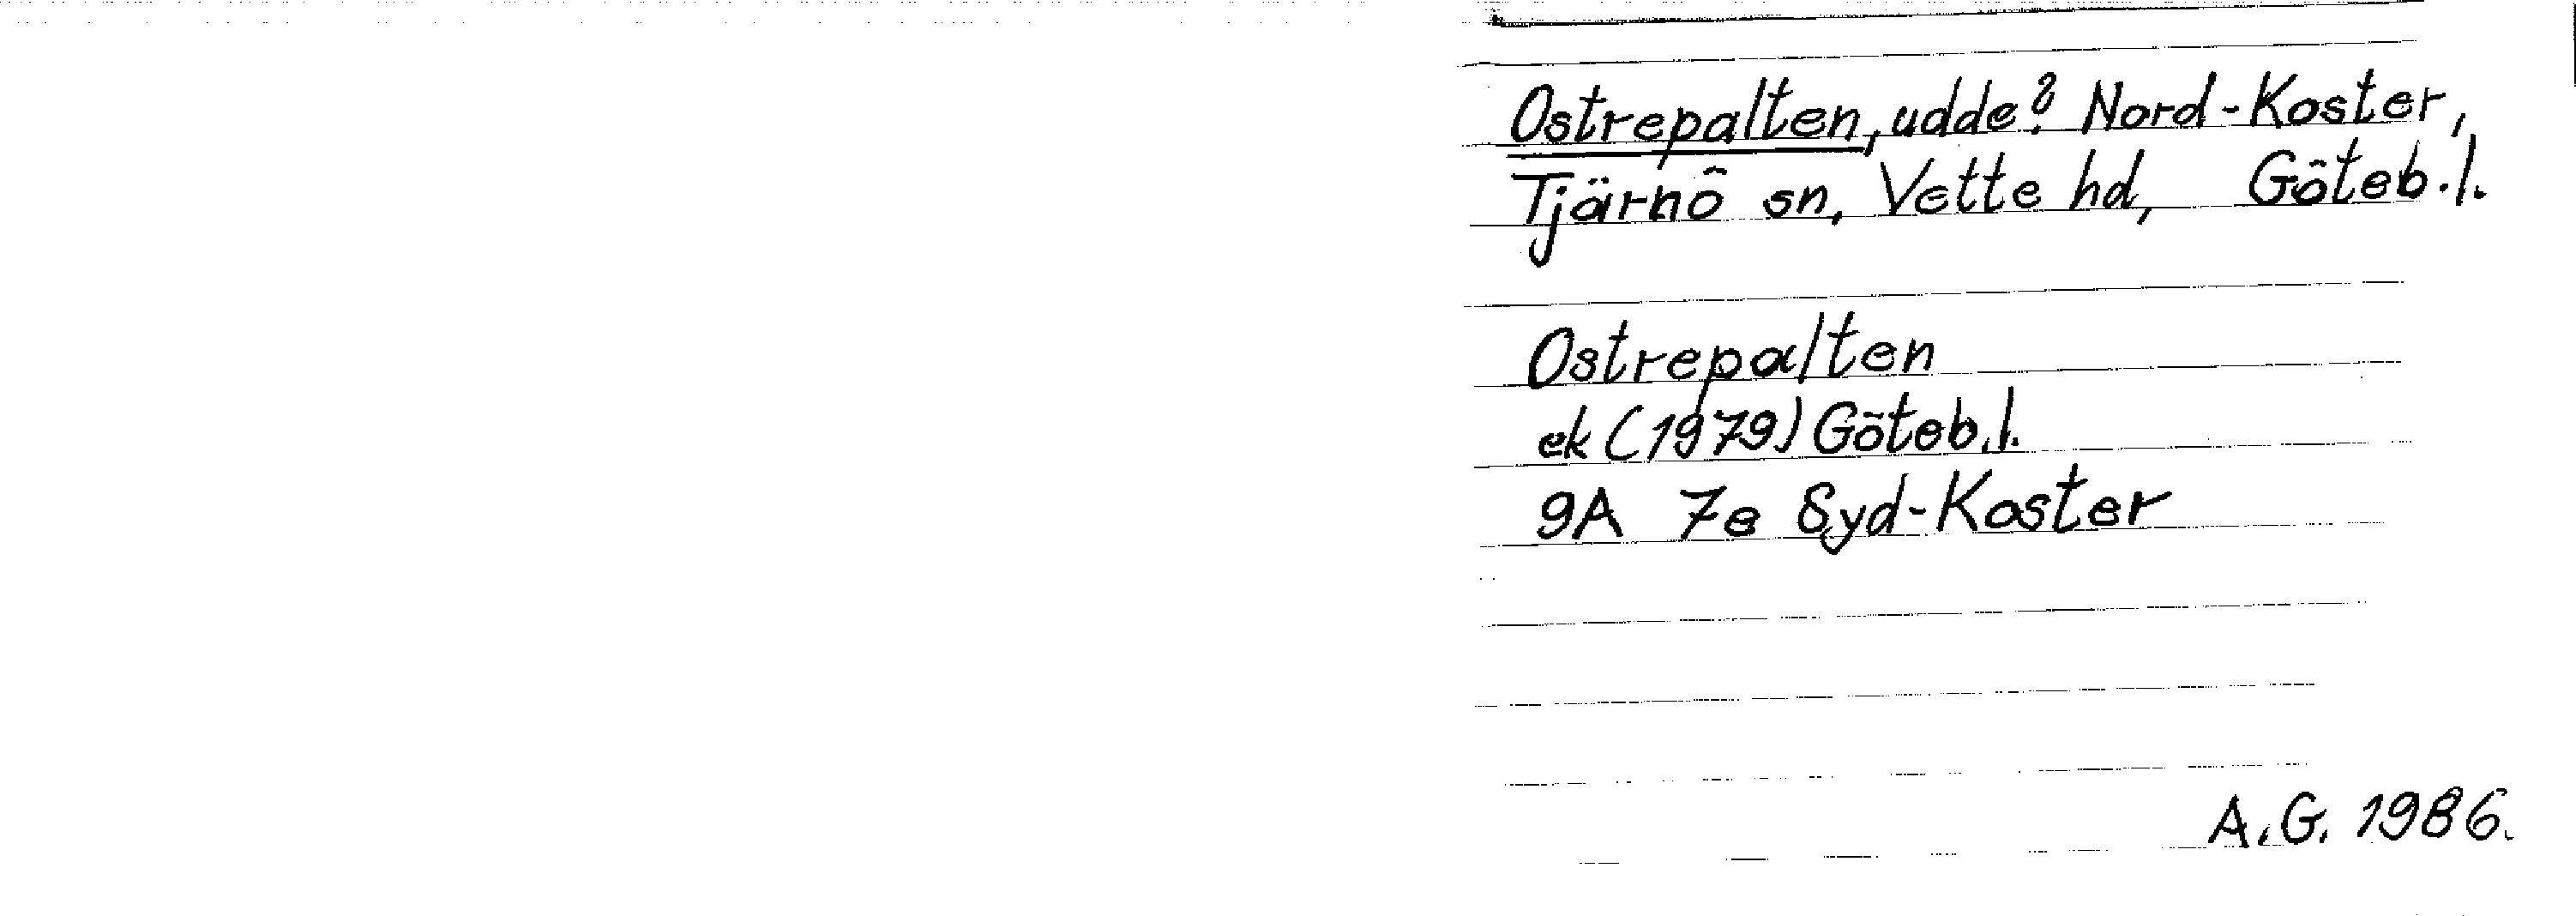 Ostrepalten, udde? Nord-Koster,
Tjärnö sn, Vette hd, Göteb.l.
Ostrepalten
ek (1979) Göteb.l.
9A 7e Syd-Koster
A.G. 1986.